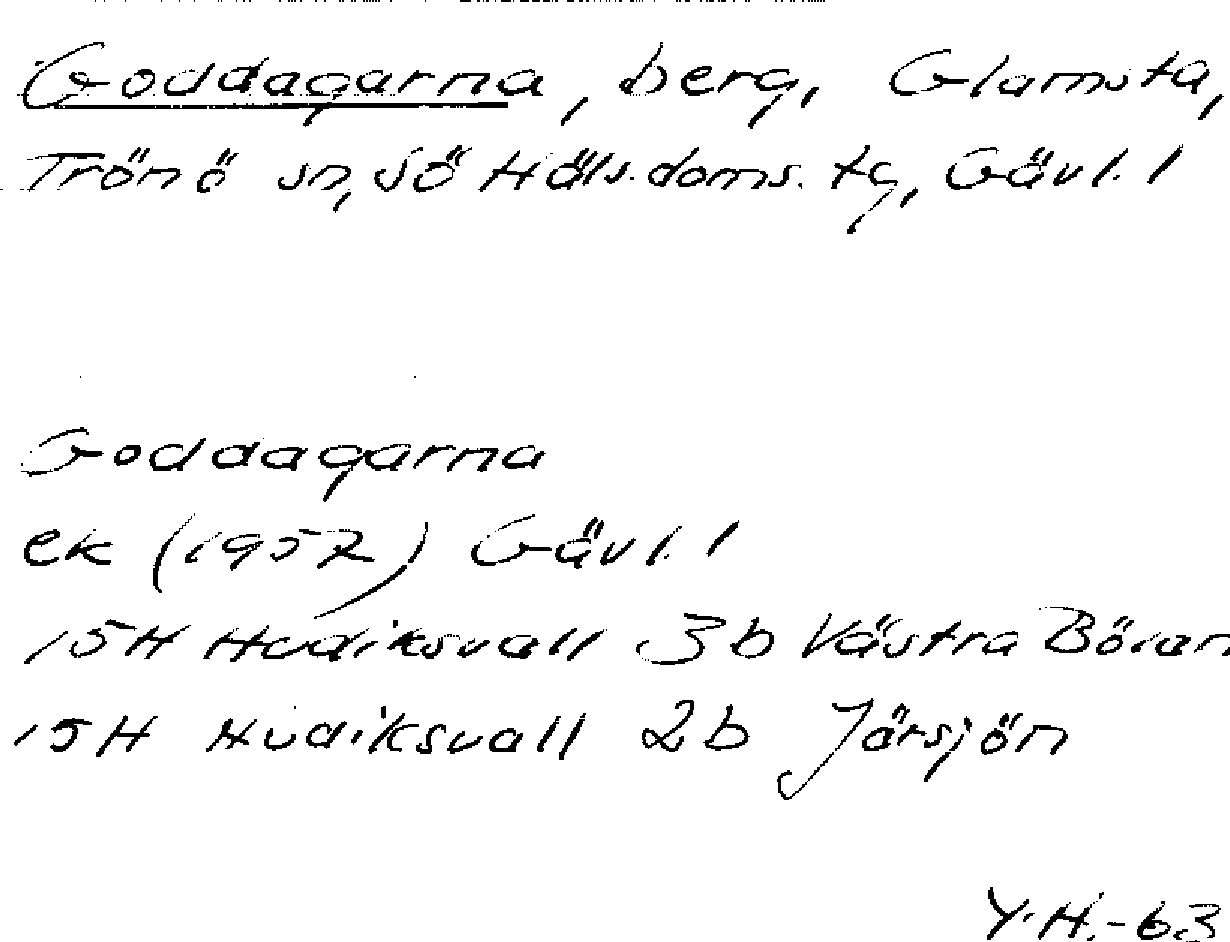 Goddagarna, berg, Glamsta,
Trönö sn, SÖ Häls. doms. tg, Gävl. l
Goddagarna
ek (1957) Gävl. l
15H Hudiksvall 3b Västra
15H Hudiksvall 2b Järsjön
Y.H.-63